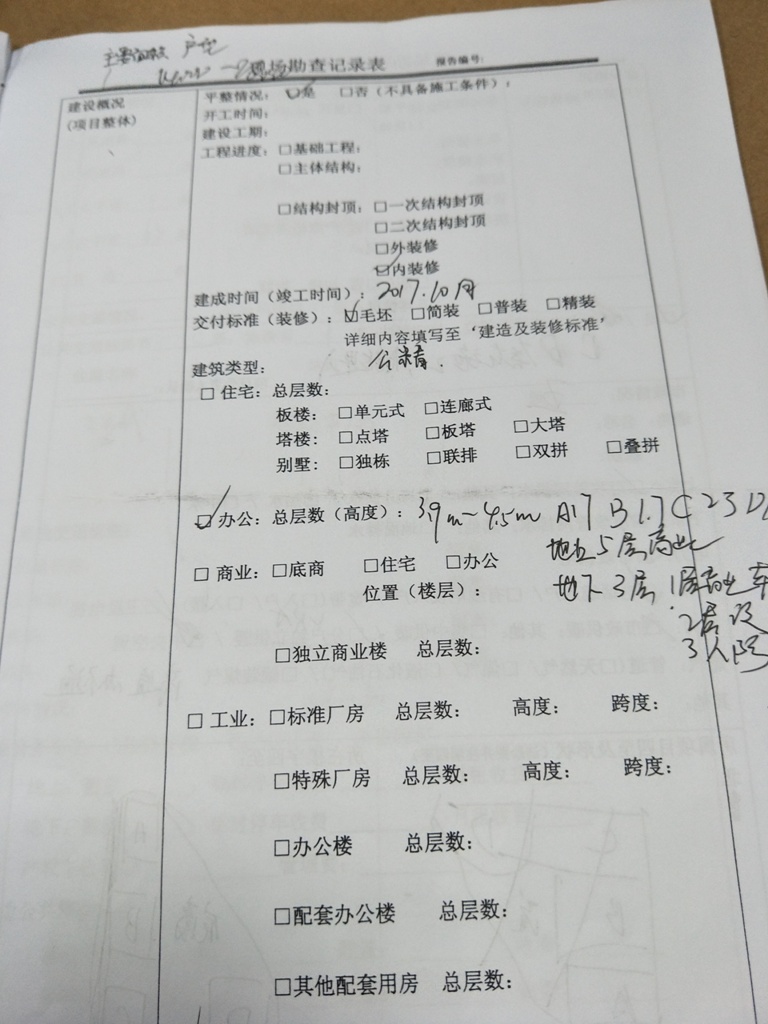 户型
现场勘查记录表 报告编号:
建设概况
(项目整体)
平整情况: ☑是 □否(不具备施工条件);
开工时间:
建设工期:
工程进度: □基础工程:
□主体结构:
□结构封顶: □一次结构封顶
□二次结构封顶
□外装修
☑内装修
建成时间(竣工时间): 2017.10月
交付标准(装修): ☑毛坯 □简装 □普装 □精装
详细内容填写至‘建造及装修标准’
建筑类型: 公精.
□ 住宅: 总层数:
板楼: □单元式 □连廊式
塔楼: □点塔 □板塔 □大塔
别墅: □独栋 □联排 □双拼 □叠拼
☑办公: 总层数(高度): 3.9m~4.5m A17 B17 C23 D
地上5层商业
□ 商业: □底商 □住宅 □办公
位置(楼层):
地下3层 1层商业 车
2
3人防
□独立商业楼 总层数:
□ 工业: □标准厂房 总层数: 高度: 跨度:
□特殊厂房 总层数: 高度: 跨度:
□办公楼 总层数:
□配套办公楼 总层数:
□其他配套用房 总层数: